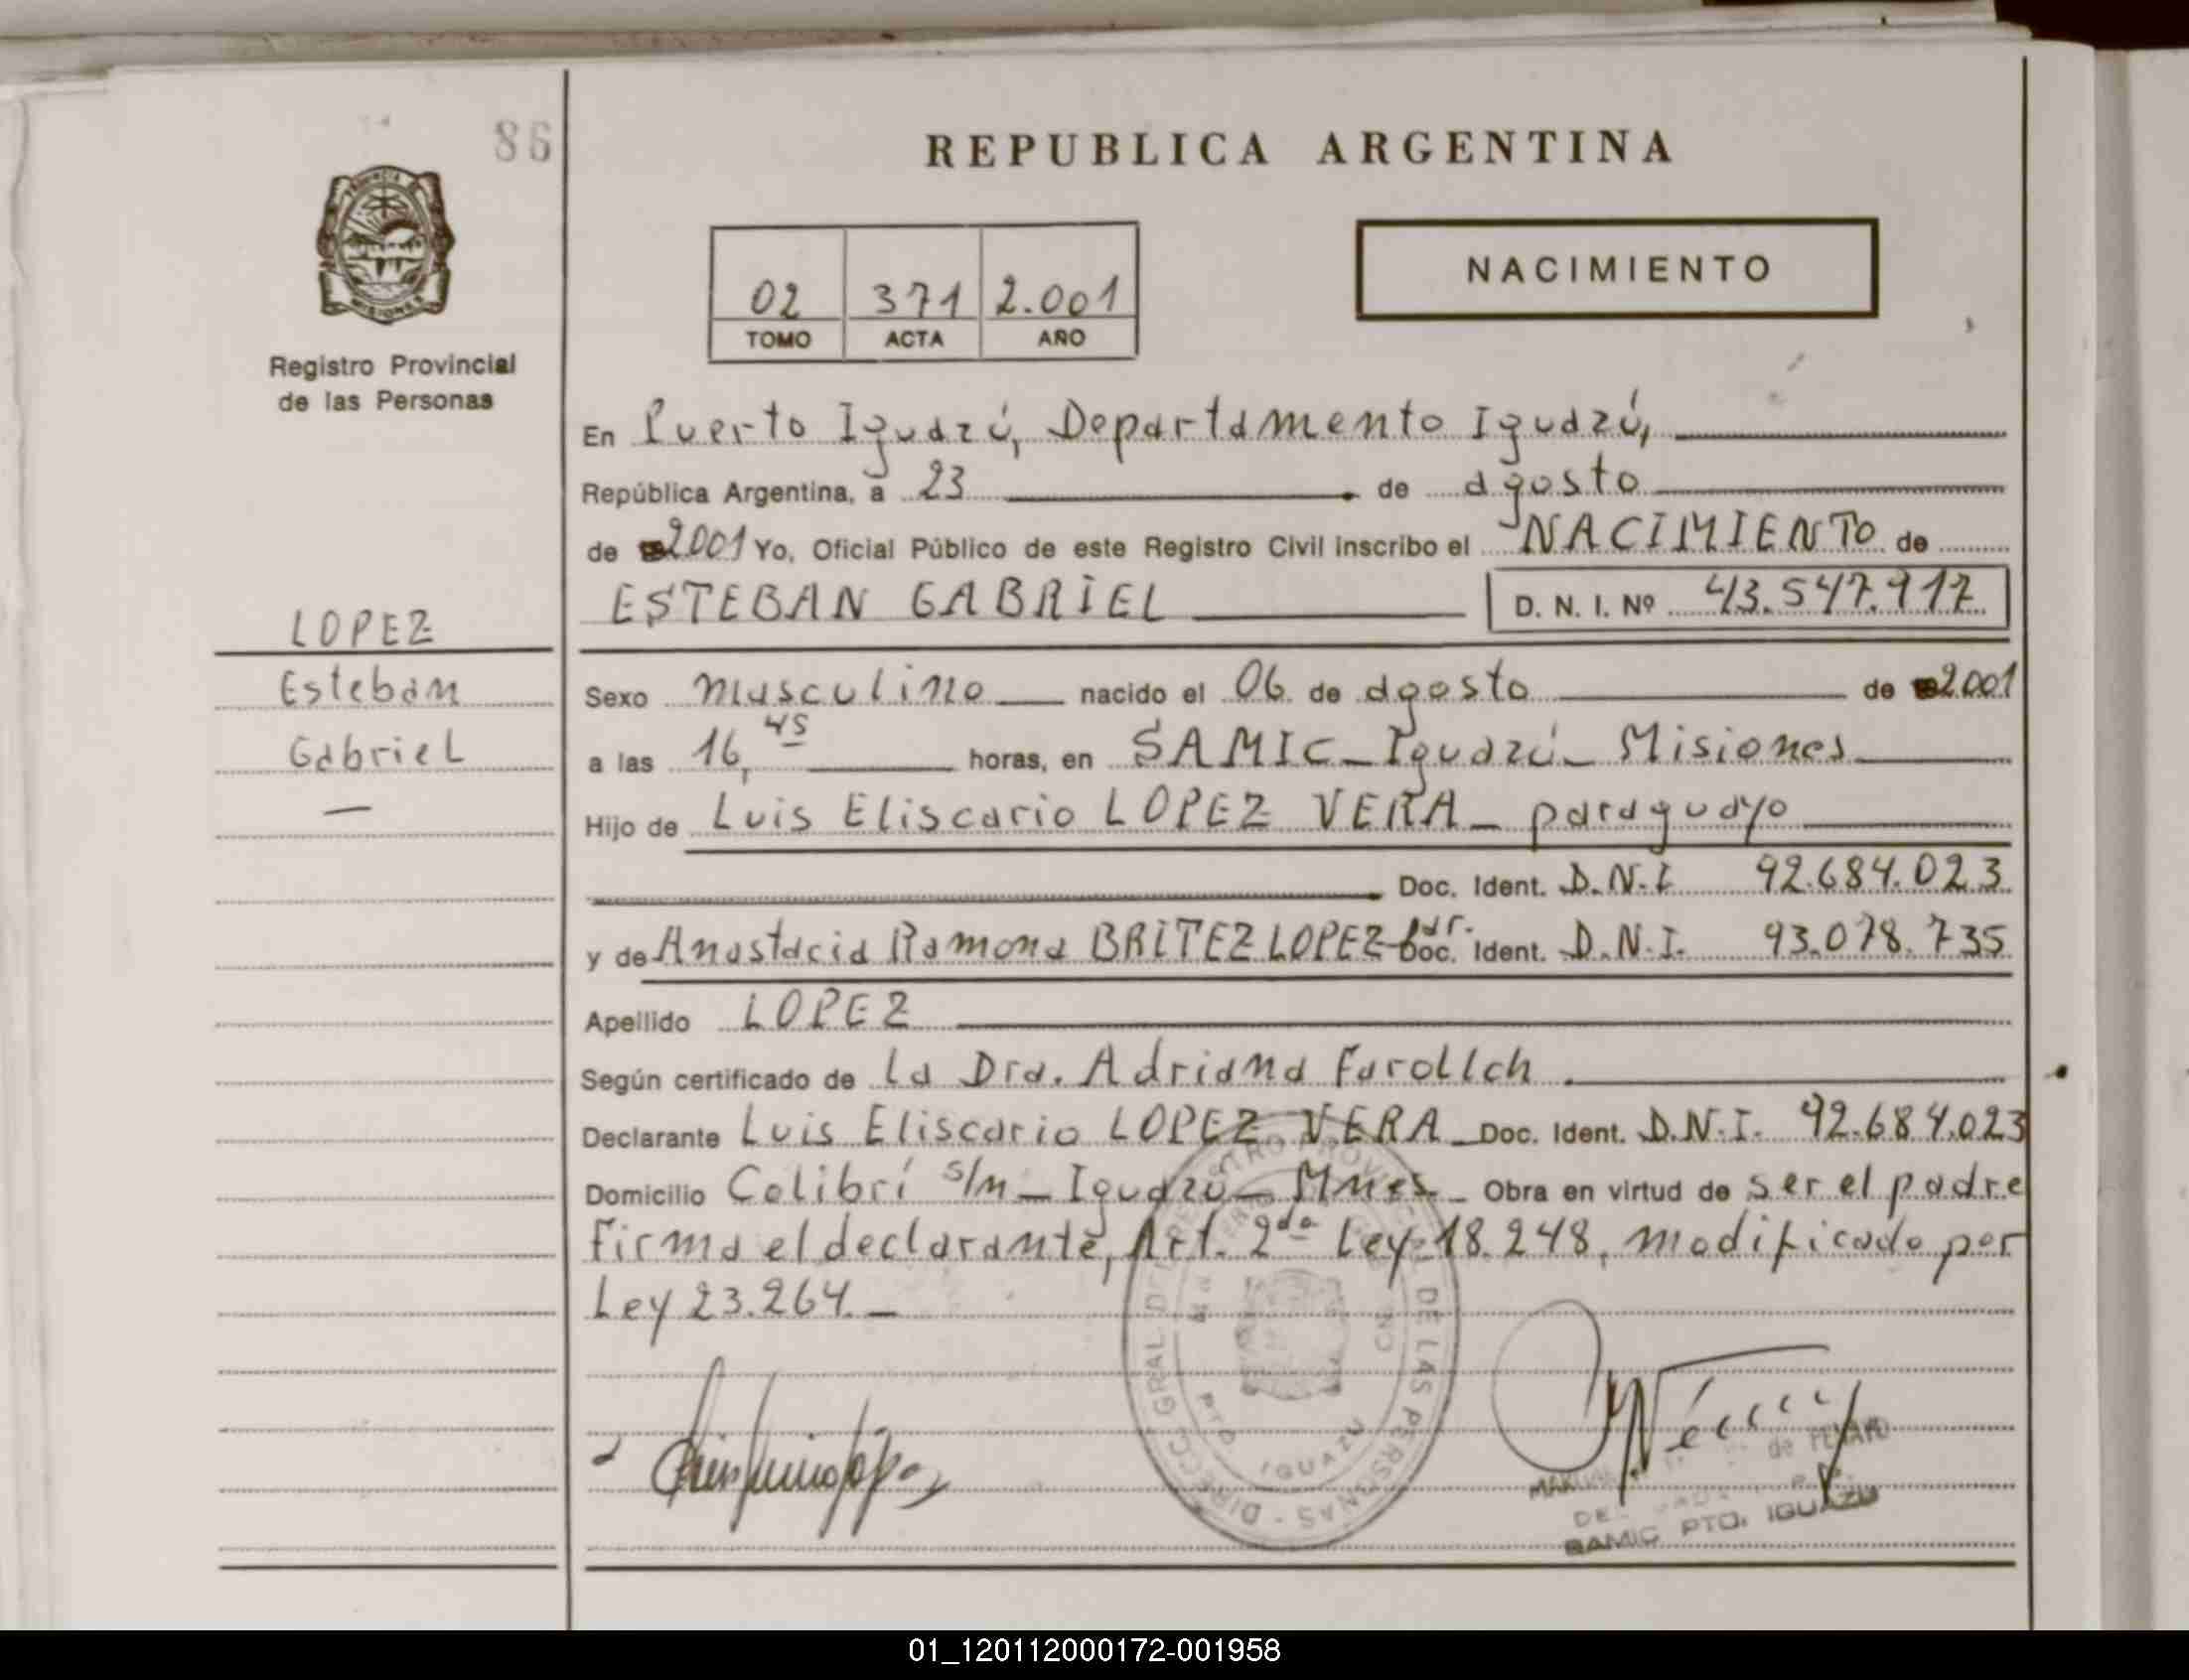 86
REPUBLICA ARGENTINA
02 371 2.001
TOMO ACTA AÑO
NACIMIENTO
Registro Provincial
de las Personas
En Puerto Iguazú, Departamento Iguazú,
República Argentina, a 23 de agosto
de 2001 Yo, Oficial Público de este Registro Civil inscribo el NACIMIENTO de
ESTEBAN GABRIEL D. N. I. Nº 43.547.917
LOPEZ
Esteban
Gabriel
Sexo masculino nacido el 06 de agosto de 2001
a las 16,45 horas, en SAMIC - Iguazú - Misiones
Hijo de Luis Eliscario LOPEZ VERA - paraguayo
Doc. Ident. D.N.I. 92.684.023
y de Anastacia Ramona BRITEZ LOPEZ - par. Doc. Ident. D.N.I. 93.078.735
Apellido LOPEZ
Según certificado de la Dra. Adriana
Declarante Luis Eliscario LOPEZ VERA Doc. Ident. D.N.I. 92.684.023
Domicilio Colibrí s/n - Iguazú - Mnes - Obra en virtud de ser el padre
Firma el declarante, Art. 2da Ley 18.248, modificado por
Ley 23.264. -
DIRECC. GRAL. DEL REGISTRO PROVINCIAL DE LAS PERSONAS
PTO IGUAZU
SAMIC PTO. IGUAZU
01_120112000172-001958